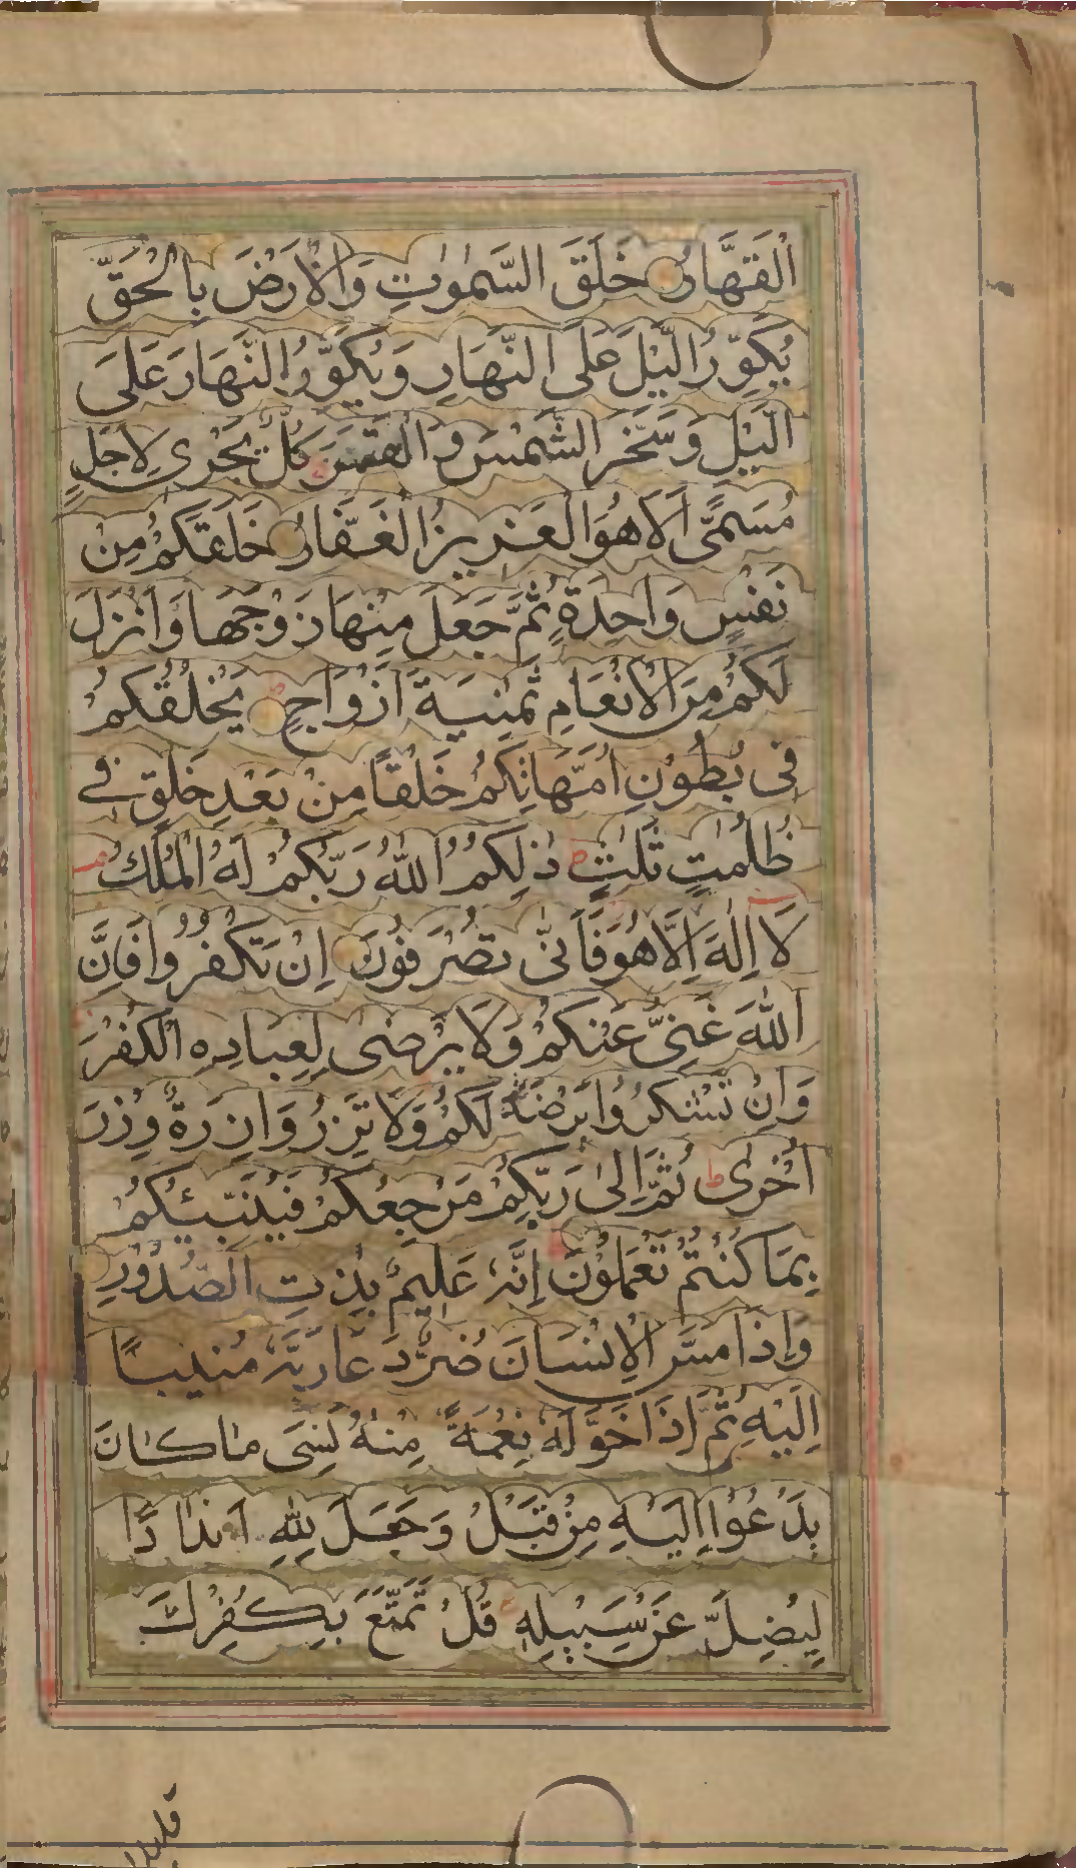 الْقَهَّارُ خَلَقَ السَّمٰوٰتِ وَالْاَرْضَ بِالْحَقِّ
يُكَوِّرُ الَّيْلَ عَلَى النَّهَارِ وَيُكَوِّرُ النَّهَارَ عَلَى
الَّيْلِ وَسَخَّرَ الشَّمْسَ وَالْقَمَرَ كُلٌّ يَجْرِى لِاَجَلٍ
مُسَمًّى اَلَا هُوَ الْعَزِيزُ الْغَفَّارُ خَلَقَكُمْ مِنْ
نَفْسٍ وَاحِدَةٍ ثُمَّ جَعَلَ مِنْهَا زَوْجَهَا وَاَنْزَلَ
لَكُمْ مِنَ الْاَنْعَامِ ثَمٰنِيَةَ اَزْوَاجٍ يَخْلُقُكُمْ
فِى بُطُوْنِ اُمَّهَاتِكُمْ خَلْقًا مِنْ بَعْدِ خَلْقٍ فِے
ظُلُمٰتٍ ثَلٰثٍ ط ذٰلِكُمُ اللّٰهُ رَبُّكُمْ لَهُ الْمُلْكُ
لَا اِلٰهَ اِلَّا هُوَ فَاَنّٰى تُصْرَفُوْنَ اِنْ تَكْفُرُوْا فَاِنَّ
اللّٰهَ غَنِىٌّ عَنْكُمْ وَلَا يَرْضٰى لِعِبَادِهِ الْكُفْرَ
وَاِنْ تَشْكُرُوْا يَرْضَهُ لَكُمْ وَلَا تَزِرُ وَازِرَةٌ وِزْرَ
اُخْرٰى ط ثُمَّ اِلٰى رَبِّكُمْ مَرْجِعُكُمْ فَيُنَبِّئُكُمْ
بِمَا كُنْتُمْ تَعْمَلُوْنَ اِنَّهُ عَلِيْمٌ بِذٰتِ الصُّدُوْرِ
وَاِذَا مَسَّ الْاِنْسَانَ ضُرٌّ دَعَا رَبَّهُ مُنِيْبًا
اِلَيْهِ ثُمَّ اِذَا خَوَّلَهُ نِعْمَةً مِنْهُ نَسِىَ مَا كَانَ
يَدْعُوْا اِلَيْهِ مِنْ قَبْلُ وَجَعَلَ لِلّٰهِ اَنْدَادًا
لِيُضِلَّ عَنْ سَبِيْلِهٖ قُلْ تَمَتَّعْ بِكُفْرِكَ
قليلا